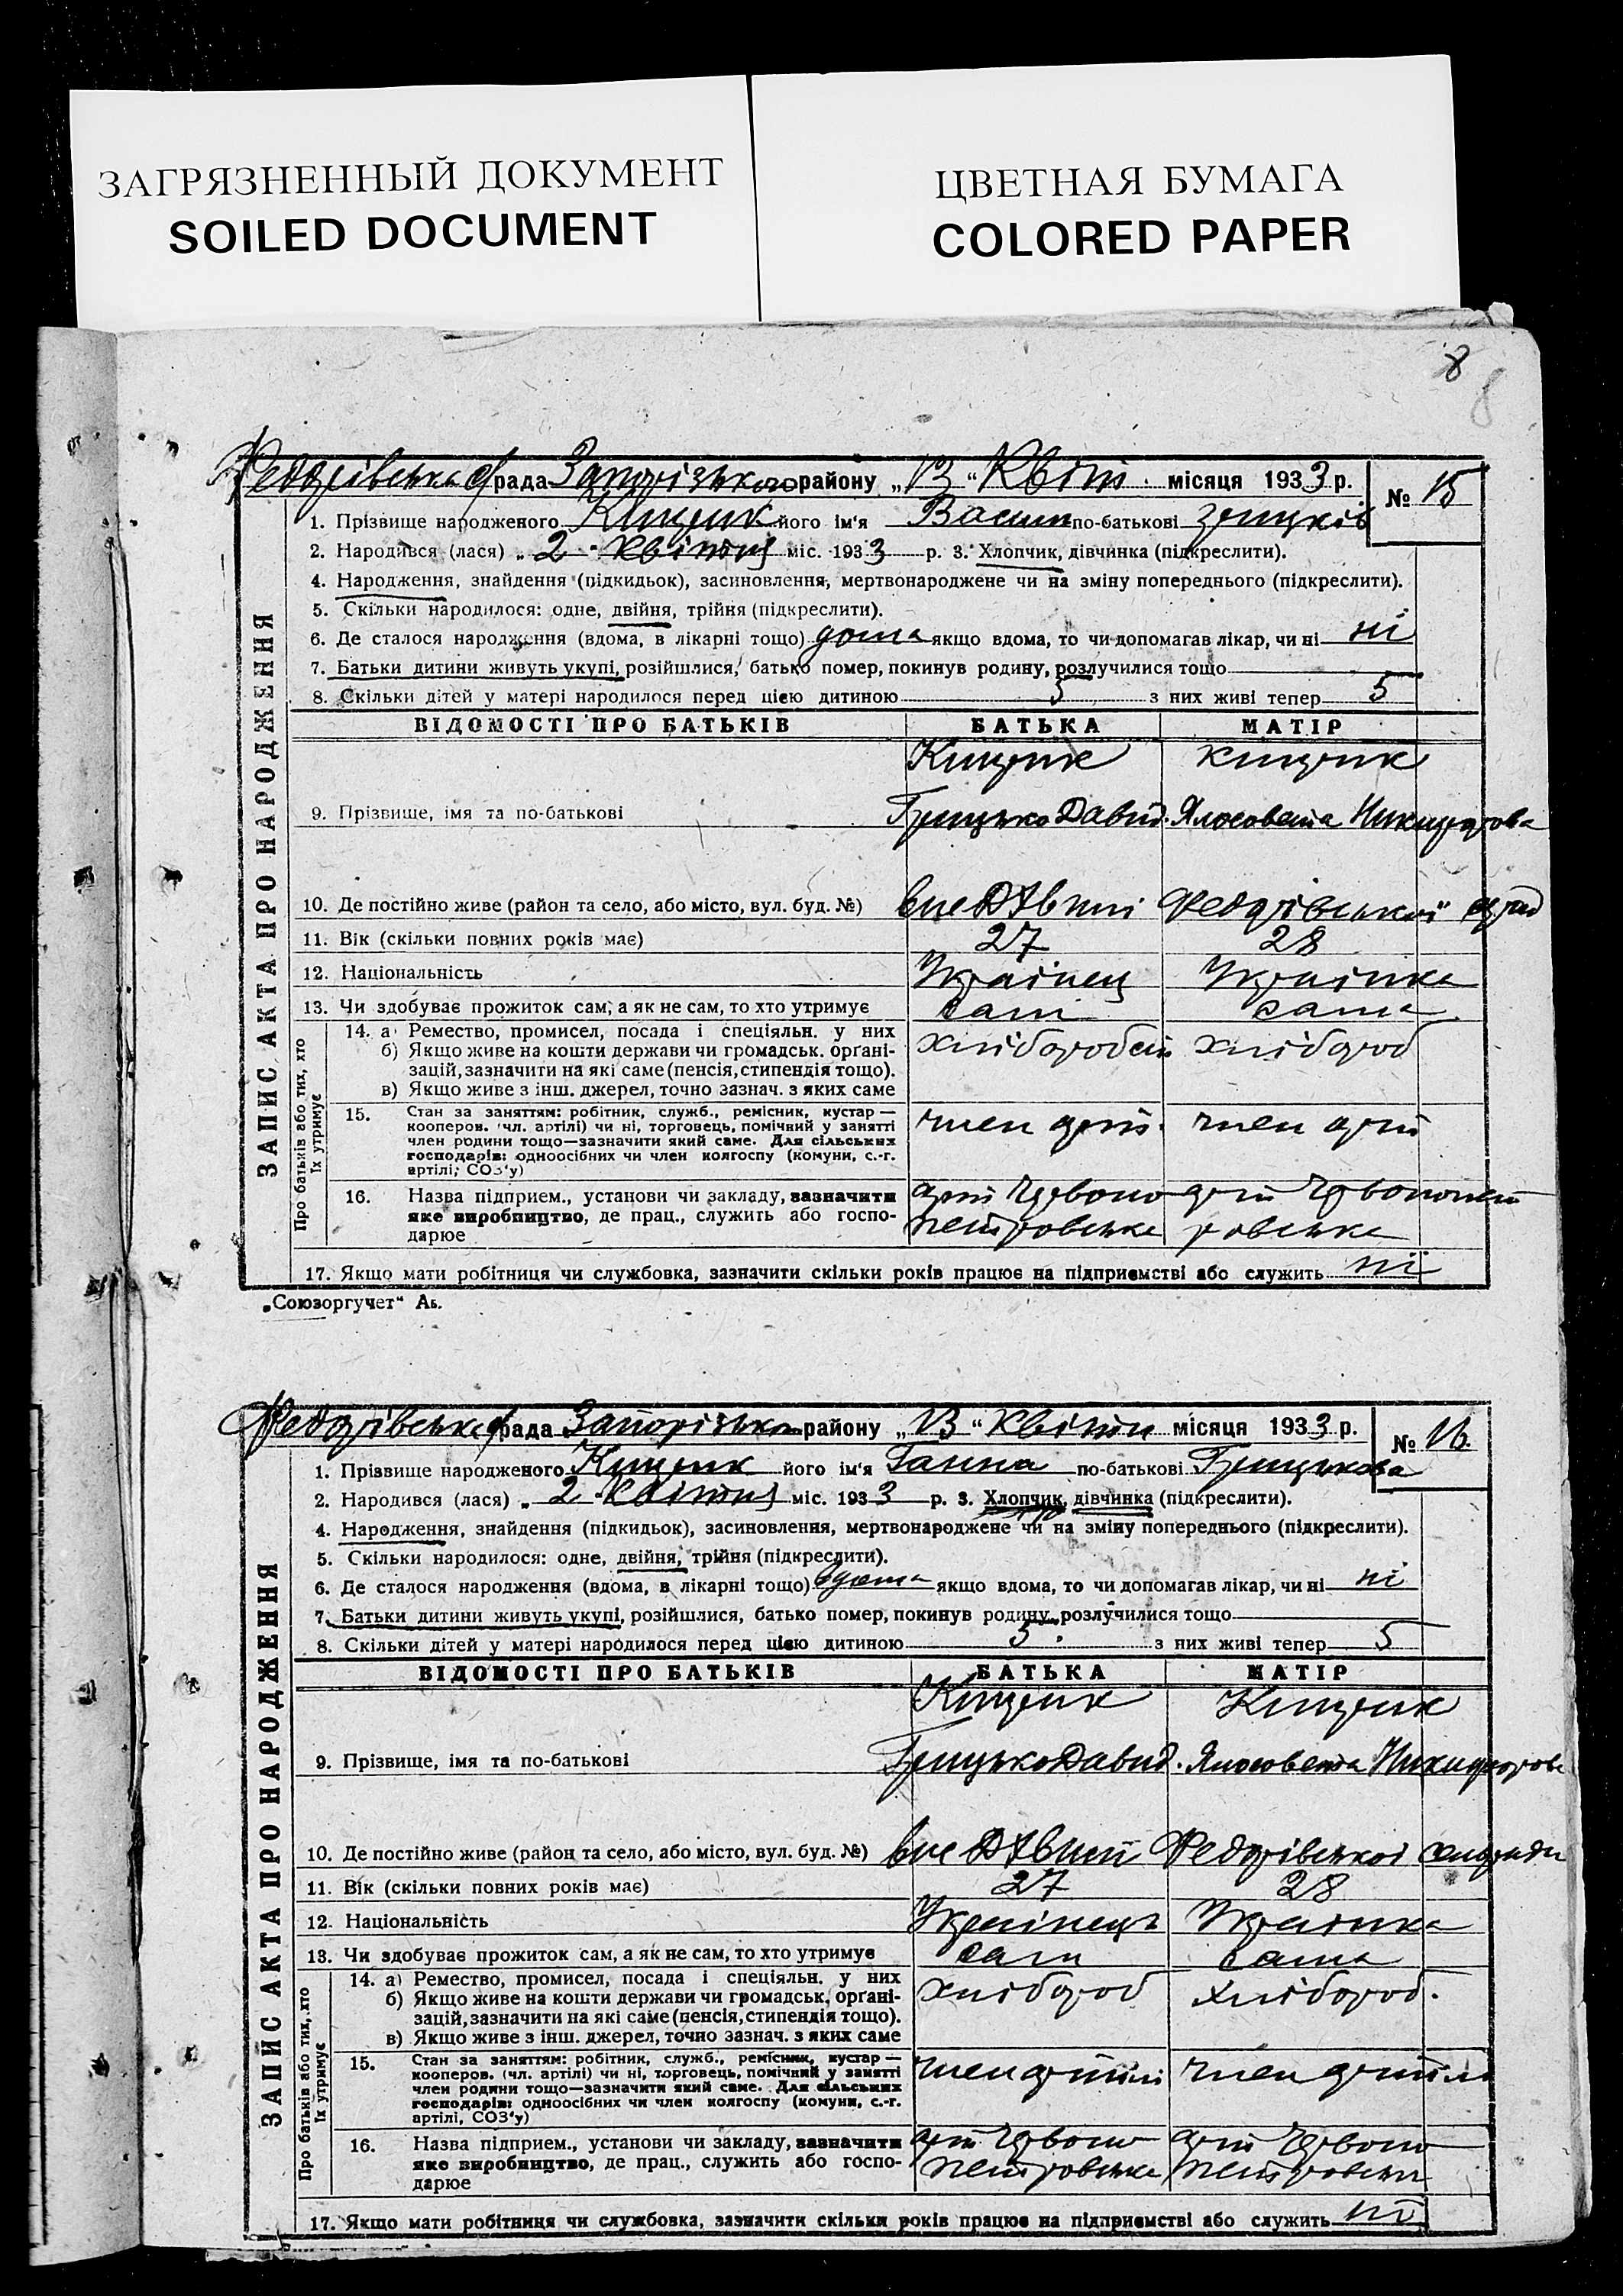 ЗАГРЯЗНЕННЫЙ ДОКУМЕНТ
SOILED DOCUMENT
ЦВЕТНАЯ БУМАГА
COLORED PAPER
8
8
рада Запорізького району „13“ Квітн. місяця 1933 р. № 15
ЗАПИС АКТА ПРО НАРОДЖЕННЯ
1. Прізвище народженого Кищрик його ім'я Васил по-батькові
2. Народився (лася) „2“ квітня міс. 1933 р. 3. Хлопчик, дівчинка (підкреслити).
4. Народження, знайдення (підкидьок), засиновлення, мертвонароджене чи на зміну попереднього (підкреслити).
5. Скільки народилося: одне, двійня, трійня (підкреслити).
6. Де сталося народження (вдома, в лікарні тощо) дома якщо вдома, то чи допомагав лікар, чи ні ні
7. Батьки дитини живуть укупі, розійшлися, батько помер, покинув родину, розлучилися тощо
8. Скільки дітей у матері народилося перед цією дитиною 5 з них живі тепер 5
ВІДОМОСТІ ПРО БАТЬКІВ БАТЬКА МАТІР
Кищрик Кищрик
9. Прізвище, імя та по-батькові Грицько Давид. Ялосовета Никифорова
10. Де постійно живе (район та село, або місто, вул. буд. №) Федорівської
11. Вік (скільки повних років має) 27 28
12. Національність Українец Українка
13. Чи здобуває прожиток сам, а як не сам, то хто утримує сам сама
Про батьків або тих, хто їх утримує
14. а) Ремество, промисел, посада і спеціяльн. у них хлібороб
б) Якщо живе на кошти держави чи громадськ. органі-
зацій, зазначити на які саме (пенсія, стипендія тощо).
в) Якщо живе з інш. джерел, точно зазнач. з яких саме
15. Стан за заняттям: робітник, служб., ремісник, кустар — член арт. член арт
кооперов. (чл. артілі) чи ні, торговець, помічний у занятті
член родини тощо—зазначити який саме. Для сільських
господарів: одноосібних чи член колгоспу (комуни, с.-г.
артілі, СОЗ'у)
16. Назва підприєм., установи чи закладу, зазначити арт Червоно арт Червонопет
яке виробництво, де прац., служить або госпо- петровська ровська
дарює
17. Якщо мати робітниця чи службовка, зазначити скільки років працює на підприємстві або служить ні
„Союзоргучет“
рада Запорізького району „13“ квітня місяця 1933 р. № 16.
ЗАПИС АКТА ПРО НАРОДЖЕННЯ
1. Прізвище народженого Кищрик його ім'я Ганна по-батькові Грицькова
2. Народився (лася) „2“ квітня міс. 1933 р. 3. Хлопчик, дівчинка (підкреслити).
4. Народження, знайдення (підкидьок), засиновлення, мертвонароджене чи на зміну попереднього (підкреслити).
5. Скільки народилося: одне, двійня, трійня (підкреслити).
6. Де сталося народження (вдома, в лікарні тощо) вдома якщо вдома, то чи допомагав лікар, чи ні ні
7. Батьки дитини живуть укупі, розійшлися, батько помер, покинув родину, розлучилися тощо
8. Скільки дітей у матері народилося перед цією дитиною 5 з них живі тепер 5
ВІДОМОСТІ ПРО БАТЬКІВ БАТЬКА МАТІР
Кищрик Кищрик
9. Прізвище, імя та по-батькові Грицько Давид. Ялосовета Никифорова
10. Де постійно живе (район та село, або місто, вул. буд. №) Федорівської сільради
11. Вік (скільки повних років має) 27 28
12. Національність Українець Українка
13. Чи здобуває прожиток сам, а як не сам, то хто утримує сам сама
Про батьків або тих, хто їх утримує
14. а) Ремество, промисел, посада і спеціяльн. у них хлібороб хлібороб.
б) Якщо живе на кошти держави чи громадськ. органі-
зацій, зазначити на які саме (пенсія, стипендія тощо).
в) Якщо живе з інш. джерел, точно зазнач. з яких саме
15. Стан за заняттям: робітник, служб., ремісник, кустар — член артілі член артілі
кооперов. (чл. артілі) чи ні, торговець, помічний у занятті
член родини тощо—зазначити який саме. Для сільських
господарів: одноосібних чи член колгоспу (комуни, с.-г.
артілі, СОЗ'у)
16. Назва підприєм., установи чи закладу, зазначити арт Червоно арт Червоно
яке виробництво, де прац., служить або госпо- петровська петровська
дарює
17. Якщо мати робітниця чи службовка, зазначити скільки років працює на підприємстві або служить ні